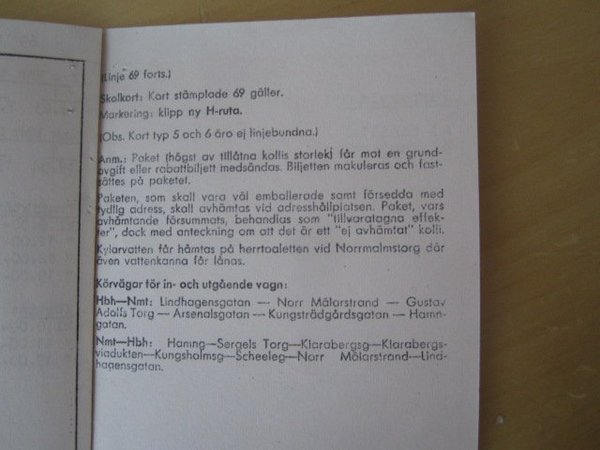 (Linje 69 forts.)
Skolkort: Kort stämplade 69 gäller.
Markering: klipp ny H-ruta.
(Obs. Kort typ 5 och 6 äro ej linjebundna.)
Anm.: Paket (högst av tillåtna kollis storlek) får mot en grund-
avgift eller rabattbiljett medsändas. Biljetten makuleras och fast-
sättes på paketet.
Paketen, som skall vara väl emballerade samt försedda med
tydlig adress, skall avhämtas vid adresshållplatsen. Paket, vars
avhämtande försummats, behandlas som "tillvaratagna effek-
ter", dock med anteckning om att det är ett "ej avhämtat" kolli.
Kylarvatten får hämtas på herrtoaletten vid Norrmalmstorg där
även vattenkanna får lånas.
Körvägar för in- och utgående vagn:
Hbh—Nmt: Lindhagensgatan — Norr Mälarstrand — Gustav
Adolfs Torg — Arsenalsgatan — Kungsträdgårdsgatan — Hamn-
gatan.
Nmt—Hbh: Hamng—Sergels Torg—Klarabergsg—Klarabergs-
viadukten—Kungsholmsg—Scheeleg—Norr Mälarstrand—Lind-
hagensgatan.